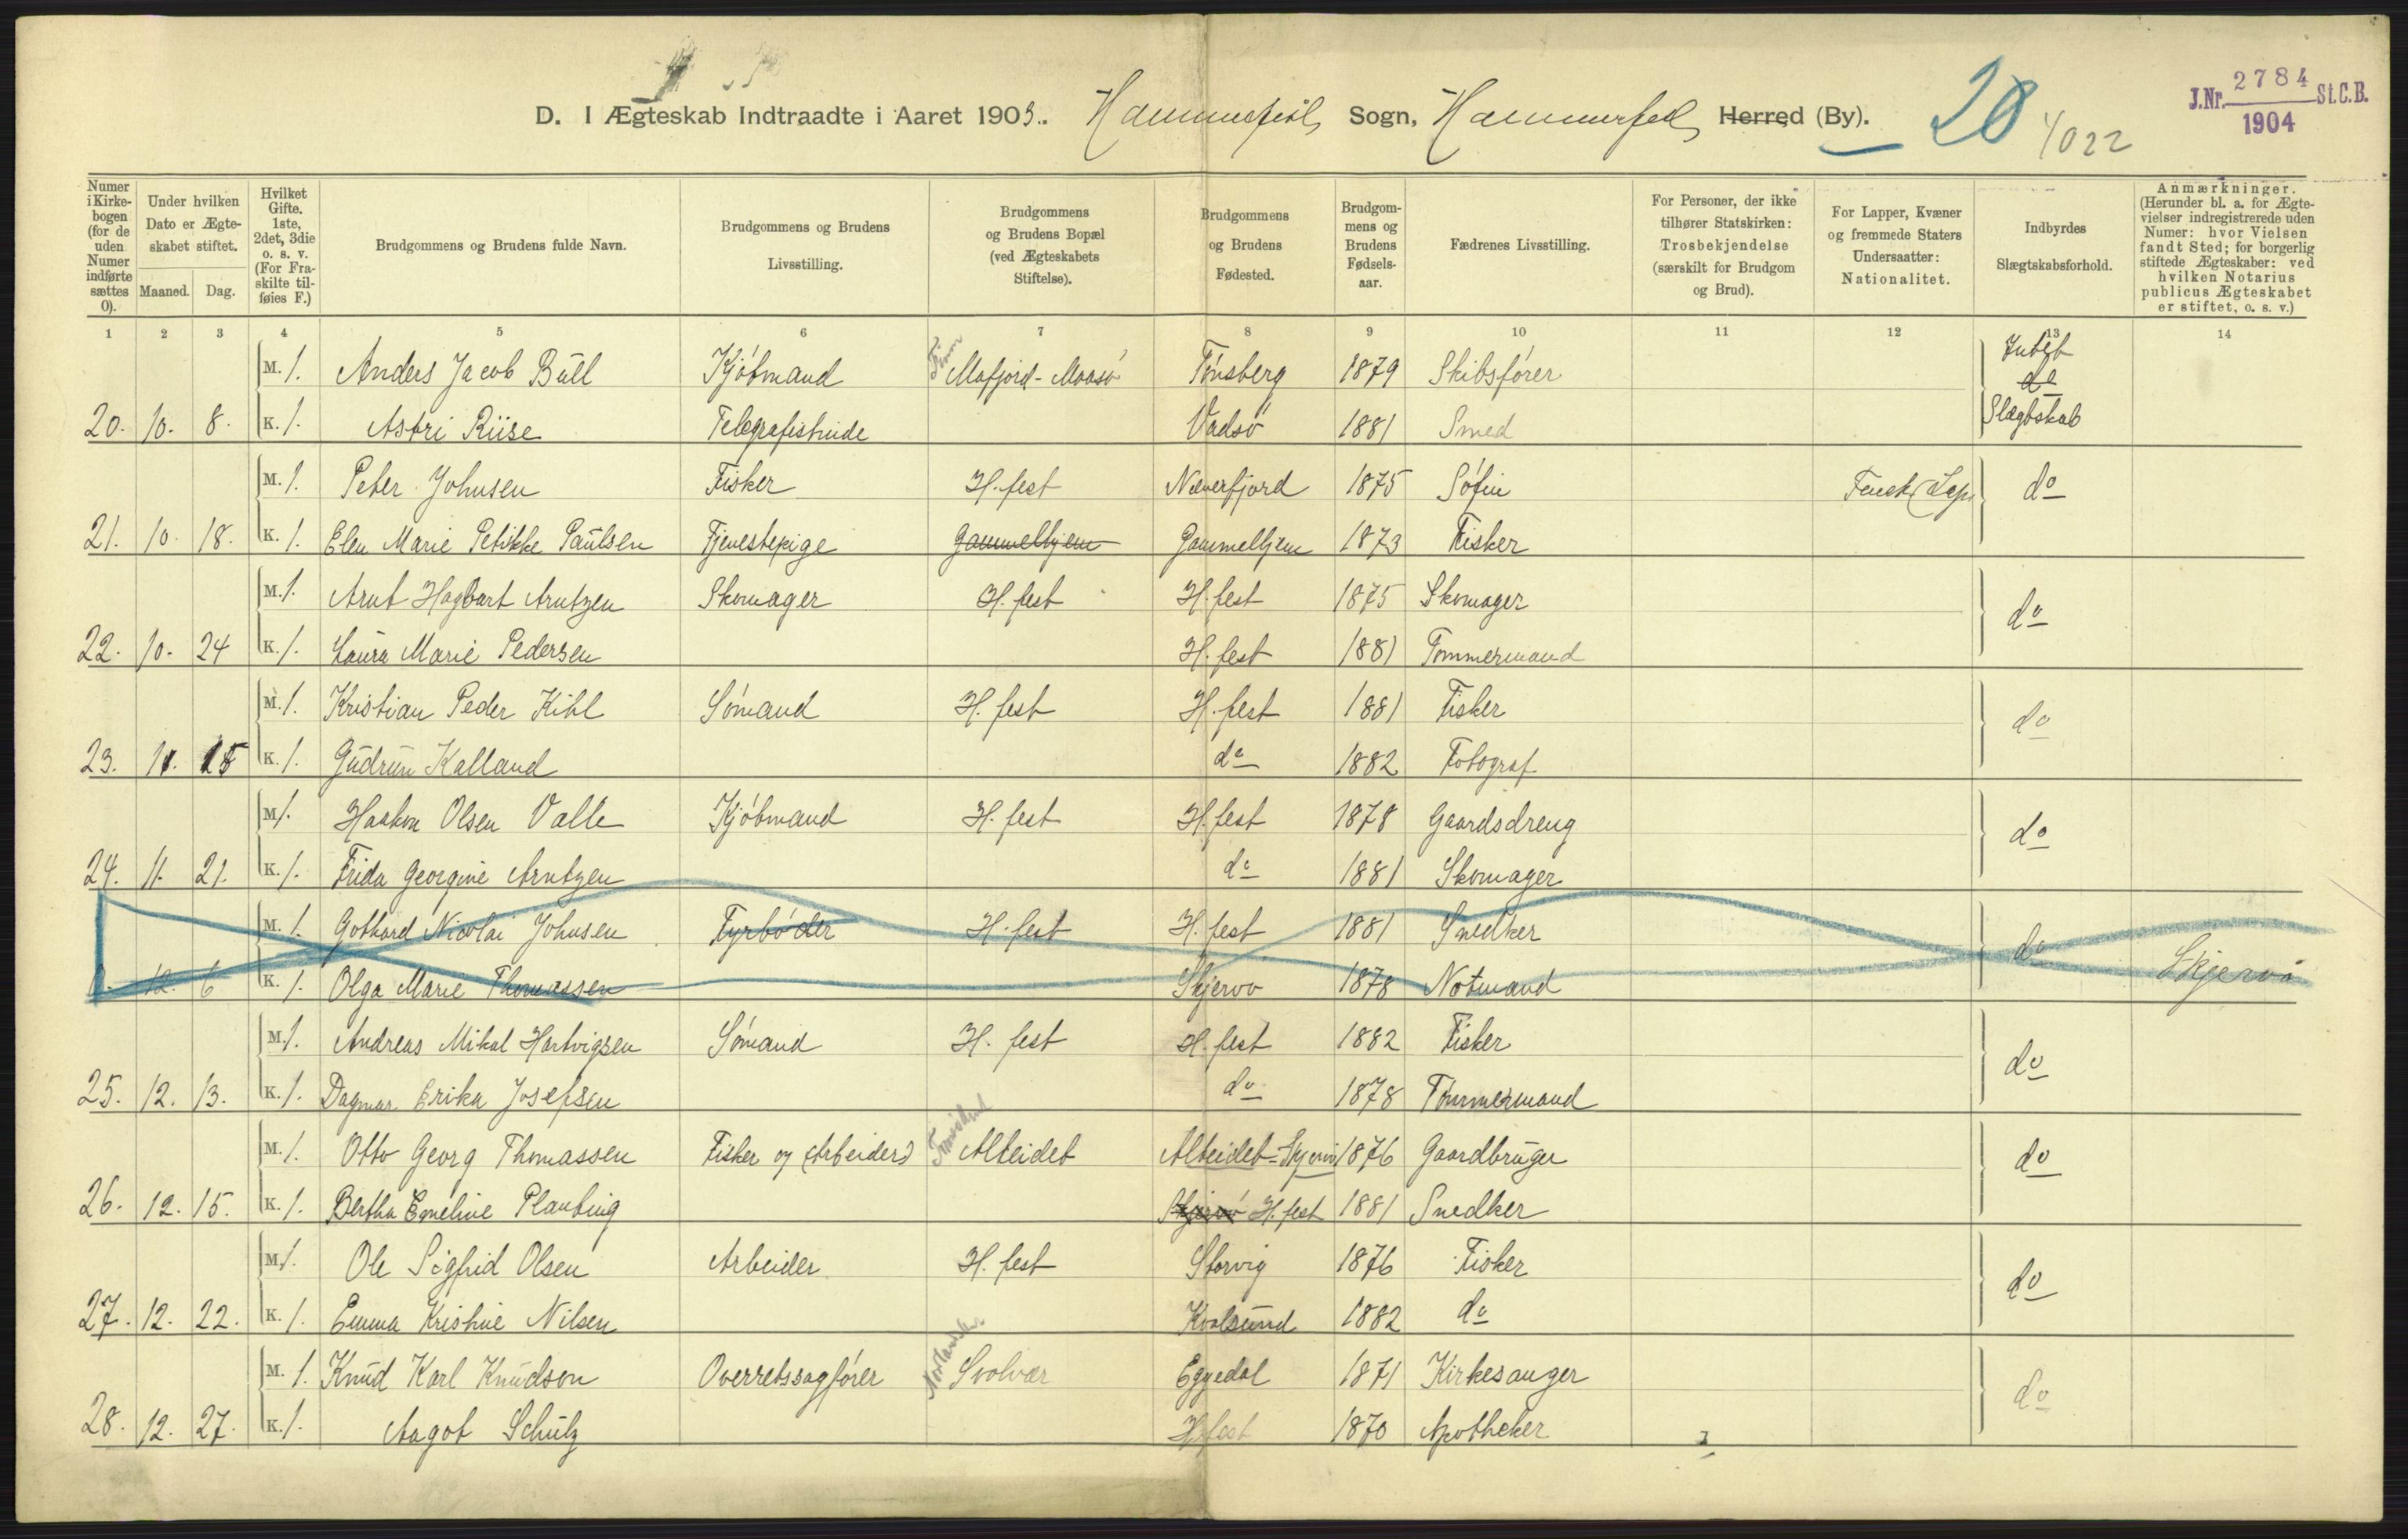 D. I Ægteskab Indtraadte i Aaret 1903. Hammerfest Sogn, Hammerfest Herred (By). 28 1022
J.Nr. 2784 St.C.B.
1904
Numer i Kirkebogen (for de uden Numer indførte sættes 0).
Under hvilken Dato er Ægteskabet stiftet.
Maaned. Dag.
Hvilket Gifte. 1ste, 2det, 3die o. s. v. (For Fraskilte tilføies F.)
Brudgommens og Brudens fulde Navn.
Brudgommens og Brudens Livsstilling.
Brudgommens og Brudens Bopæl (ved Ægteskabets Stiftelse).
Brudgommens og Brudens Fødested.
Brudgommens og Brudens Fødselsaar.
Fædrenes Livsstilling.
For Personer, der ikke tilhører Statskirken: Trosbekjendelse (særskilt for Brudgom og Brud).
For Lapper, Kvæner og fremmede Staters Undersaatter: Nationalitet.
Indbyrdes Slægtskabsforhold.
Anmærkninger. (Herunder bl. a. for Ægtevielser indregistrerede uden Numer: hvor Vielsen fandt Sted; for borgerlig stiftede Ægteskaber: ved hvilken Notarius publicus Ægteskabet er stiftet, o. s. v.)
1 2 3 4 5 6 7 8 9 10 11 12 13 14
M. 1. Anders Jacob Bull Kjøbmand Mafjord - Maasø Tønsberg 1879 Skibsfører Intet do
20. 10. 8. K. 1. Astri Riise Telegrafistinde Vadsø 1881 Smed Slægtskab
M. 1. Peter Johnsen Fisker H.fest Næverfjord 1875 Søfin do
21. 10. 18. K. 1. Elen Marie Petikke Paulsen Tjenestepige Gammelhjem Gammelhjem 1873 Fisker
M. 1. Arnt Hagbart Arntzen Skomager H.fest H.fest 1875 Skomager do
22. 10. 24 K. 1. Laura Marie Pedersen H.fest 1881 Tømmermand
M. 1. Kristian Peder Kihl Sømand H.fest H.fest 1881 Fisker do
23. 11. 15 K. 1. Gudrun Kalland do 1882 Fotograf
M. 1. Haakon Olsen Valle Kjøbmand H.fest H.fest 1878 Gaardsdreng do
24. 11. 21. K. 1. Frida Georgine Arntzen do 1881 Skomager
M. 1. Gothard Nicolai Johnsen Fyrbøder H.fest H.fest 1881 Snedker do Skjervø
12. 6 K. 1. Olga Marie Thomassen Skjervø 1878 Notmand
M. 1. Andreas Mikal Hartvigsen Sømand H. fest H.fest 1882 Fisker do
25. 12. 13. K. 1. Dagmar Erika Josefsen do 1878 Tømmermand
M. 1. Otto Georg Thomassen Fisker og Arbeider Alteidet Alteidet - Skjervø 1876 Gaardbruger do
26. 12. 15. K. 1. Bertha Emeline Planting Skjervø H.fest 1881 Snedker
M. 1. Ole Sigfrid Olsen Arbeider H. fest Storvig 1876 Fisker do
27. 12. 22. K. 1. Emma Kristine Nilsen Kvalsund 1882 do
M. 1. Knud Karl Knudson Overretssagfører Nordland Svolvær Eggedal 1871 Kirkesanger do
28. 12. 27. K. 1. Aagot Schulz H.fest 1870 Apotheker